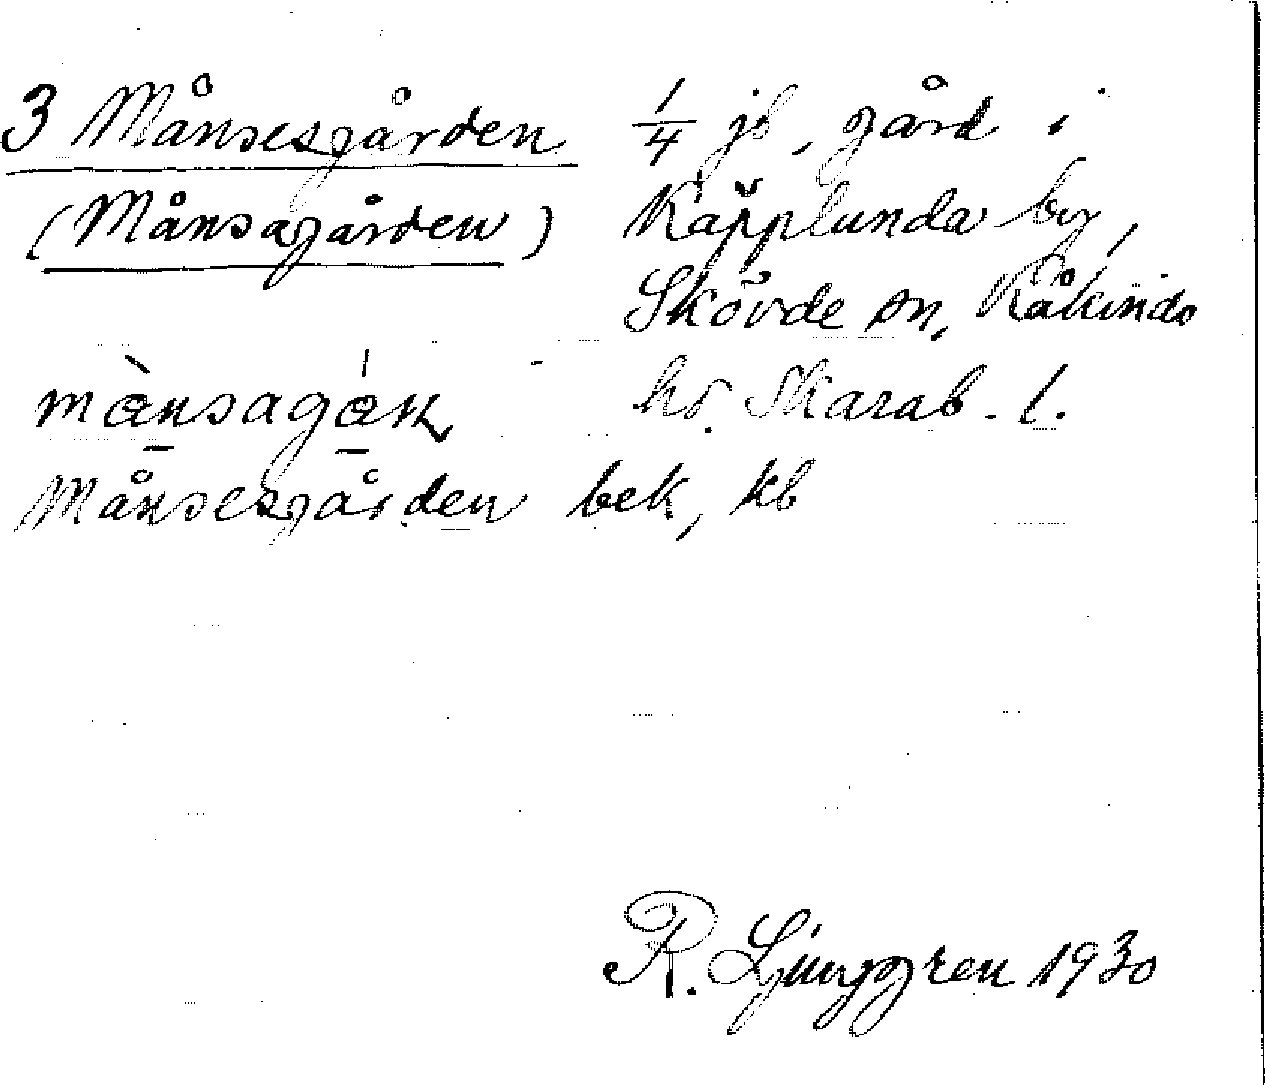 3 Månsesgården 1/4 jb, gård i
(Månsagården) Käpplunda by,
Skövde sn, Kåkinds
hd. Skarab. l.
Månsesgården bek, kb
R. Ljunggren 1930